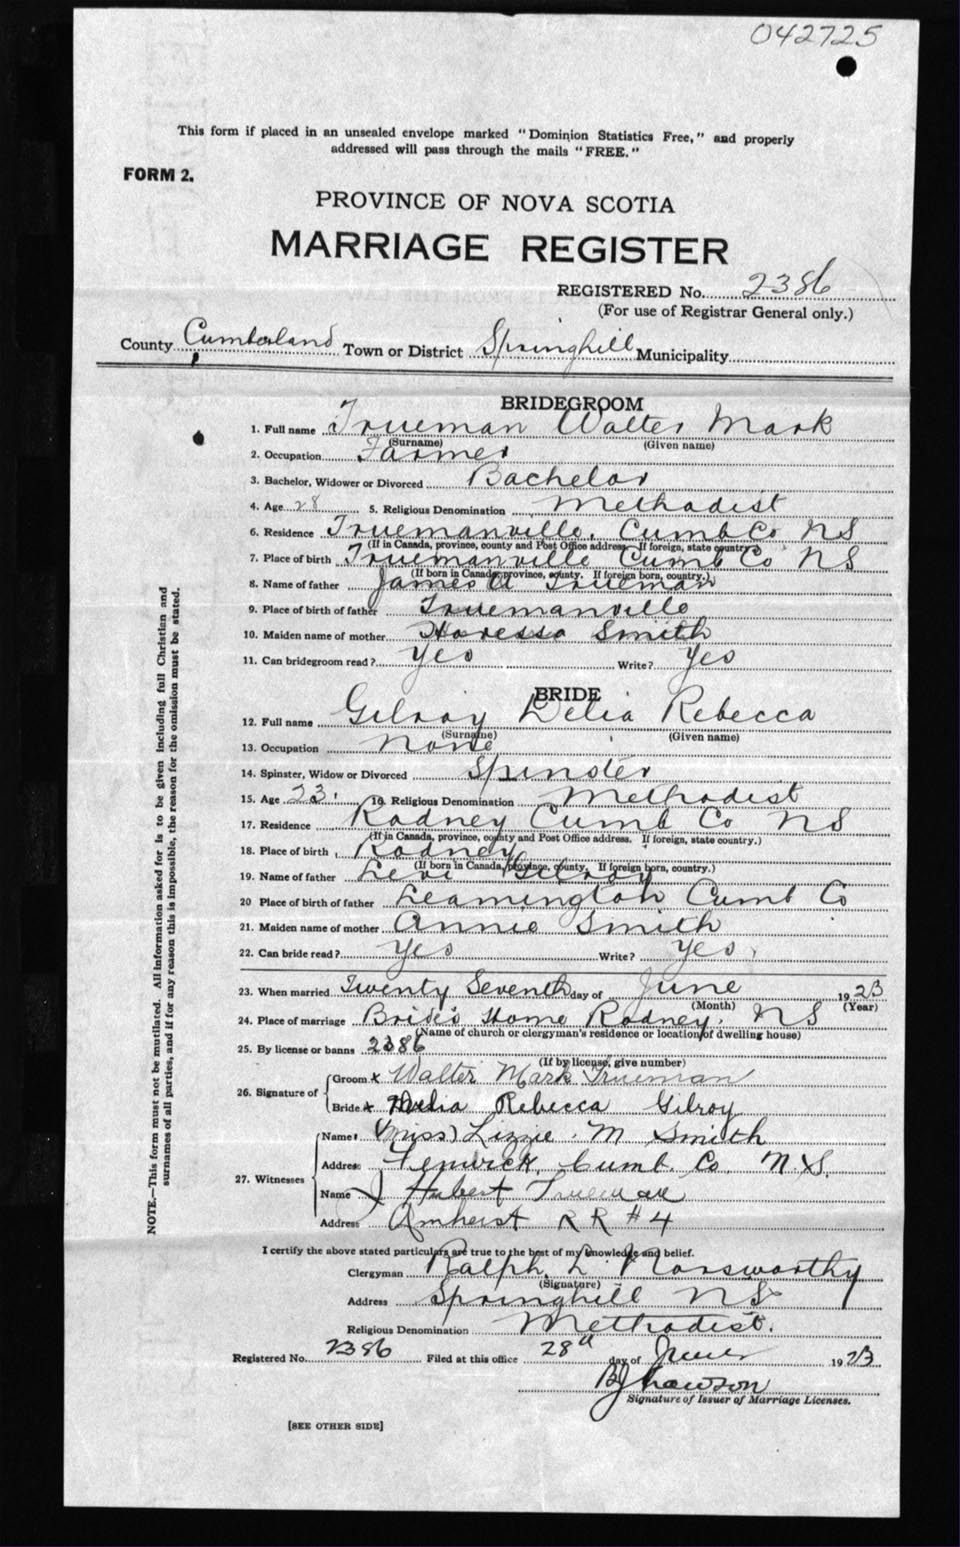 042725
This form if placed in an unsealed envelope marked "Dominion Statistics Free," and properly
addressed will pass through the mails "FREE."
FORM 2.
PROVINCE OF NOVA SCOTIA
MARRIAGE REGISTER
REGISTERED No. 2386
(For use of Registrar General only.)
County Cumberland Town or District Springhill Municipality
BRIDEGROOM
1. Full name Trueman Walter Mark
(Surname) (Given name)
2. Occupation Farmer
3. Bachelor, Widower or Divorced Bachelor
4. Age 28 5. Religious Denomination Methodist
6. Residence Truemanville, Cumb Co NS
(If in Canada, province, county and Post Office address. If foreign, state country.)
7. Place of birth Truemanville Cumb Co NS
(If born in Canada, province, county. If foreign born, country.)
8. Name of father James A Trueman
9. Place of birth of father Truemanville
10. Maiden name of mother Smith
11. Can bridegroom read? Yes Write? Yes
BRIDE
12. Full name Gilroy Delia Rebecca
(Surname) (Given name)
13. Occupation None
14. Spinster, Widow or Divorced Spinster
15. Age 23. 16. Religious Denomination Methodist
17. Residence Rodney Cumb Co NS
(If in Canada, province, county and Post Office address. If foreign, state country.)
18. Place of birth Rodney
(If born in Canada, province, county. If foreign born, country.)
19. Name of father Levi Gilroy
20 Place of birth of father Leamington Cumb Co
21. Maiden name of mother Annie Smith
22. Can bride read? Yes Write? Yes
23. When married Twenty Seventh day of June 1923
(Month) (Year)
24. Place of marriage Bride's Home Rodney. NS
(Name of church or clergyman's residence or location of dwelling house)
25. By license or banns 2386
(If by license, give number)
26. Signature of
Groom x Walter Mark Trueman
Bride x Delia Rebecca Gilroy
27. Witnesses
Name (Miss) Lizzie M Smith
Address Fenwick, Cumb. Co. N.S.
Name J Hubert Trueman
Address Amherst RR #4
I certify the above stated particulars are true to the best of my knowledge and belief.
Clergyman Ralph L. Norsworthy
(Signature)
Address Springhill NS
Religious Denomination Methodist.
Registered No. 2386 Filed at this office 28th day of June 1923
Signature of Issuer of Marriage Licenses.
[SEE OTHER SIDE]
NOTE.—This form must not be mutilated. All information asked for is to be given including full Christian and
surnames of all parties, and if for any reason this is impossible, the reason for the omission must be stated.